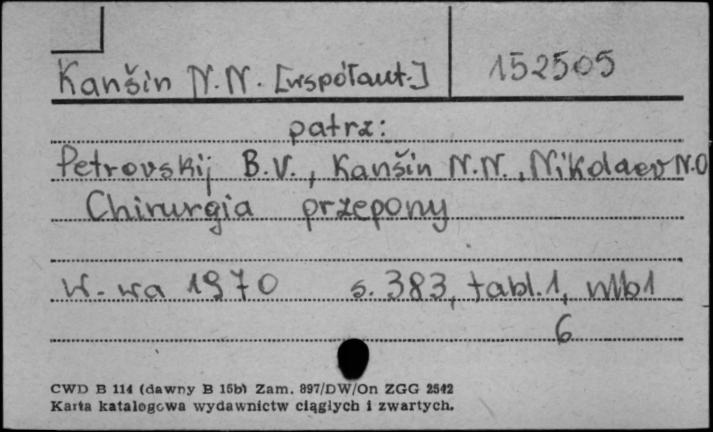 Kanšin N.N. [współaut.] 152505
patrz:
Petrovskij B.V., Kanšin N.N., Nikolaev N.O
Chirurgia przepony
W-wa 1970 s. 383, tabl.1, nlb1
6
CWD B 114 (dawny B 15b) Zam. 897/DW/On ZGG 2542
Karta katalogowa wydawnictw ciągłych i zwartych.